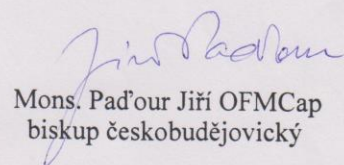 Jiří Paďour
Mons. Paďour Jiří OFMCap
biskup českobudějovický